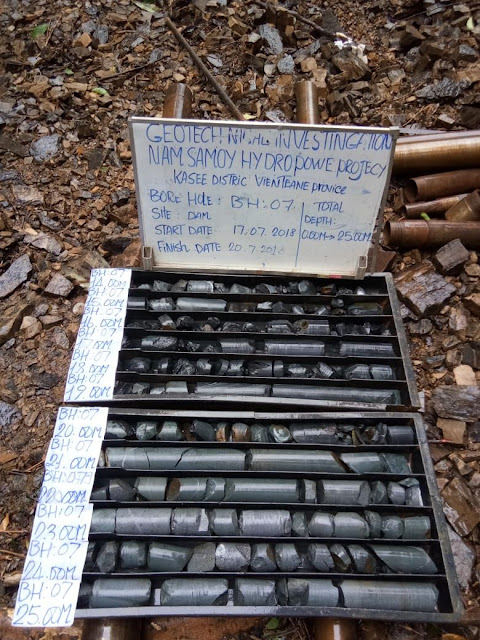 GEOTECHNICAL INVESTINGATION
NAM SAMOY HYDROPOWE PROJECY
KASEE DISTRIC VIENTEANE PROVICE
BORE HOLE: BH:07
TOTAL
SITE: DAM
DEPTH:
START DATE 17.07.2018
0.00M→25.00M
FINISH DATE 20.7.2018
BH:07
14.00M
BH:07
15.00M
BH:07
16.00M
BH:07
BH:07
18.00M
BH:07
19.00M
BH:07
20.00M
BH:07
21.00M
BH:07
22.00M
BH:07
23.00M
BH:07
24.00M
BH:07
25.00M